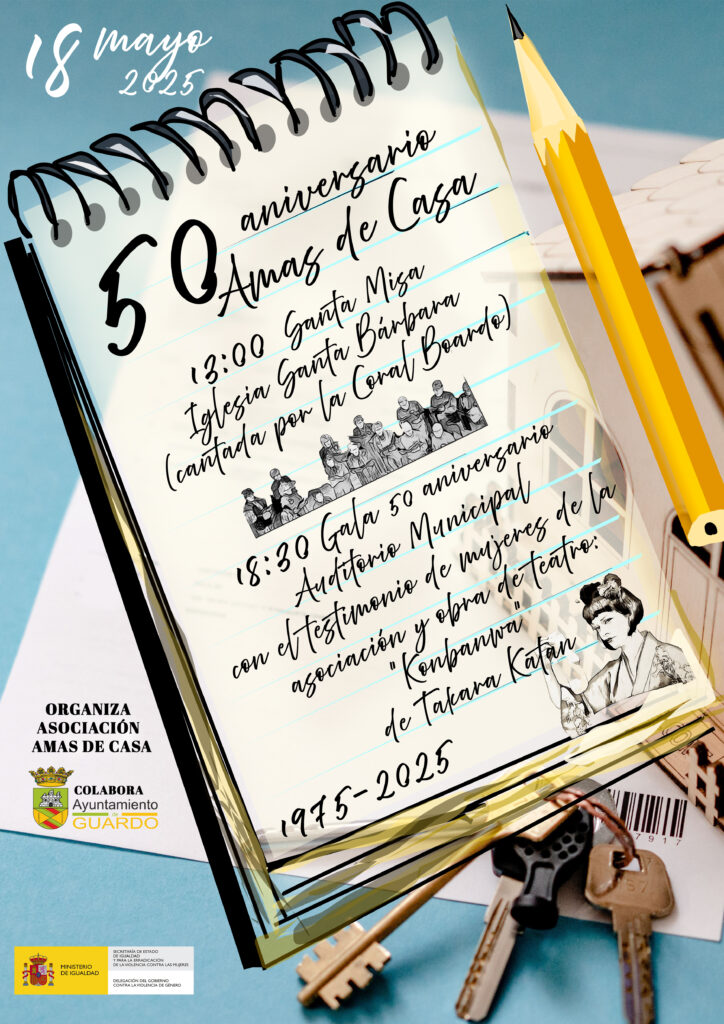 18 mayo
2025
50 aniversario
Amas de Casa
13:00 Santa Misa
Iglesia Santa Bárbara
(cantada por la Coral Boardo)
18:30 Gala 50 aniversario
Auditorio Municipal
con el testimonio de mujeres de la
asociación y obra de teatro:
"Konbanwa"
de Takara Katán
1975-2025
ORGANIZA
ASOCIACIÓN
AMAS DE CASA
COLABORA
Ayuntamiento
de
GUARDO
MINISTERIO
DE IGUALDAD
SECRETARÍA DE ESTADO
DE IGUALDAD
Y PARA LA ERRADICACIÓN
DE LA VIOLENCIA CONTRA LAS MUJERES
DELEGACIÓN DEL GOBIERNO
CONTRA LA VIOLENCIA DE GÉNERO
7917